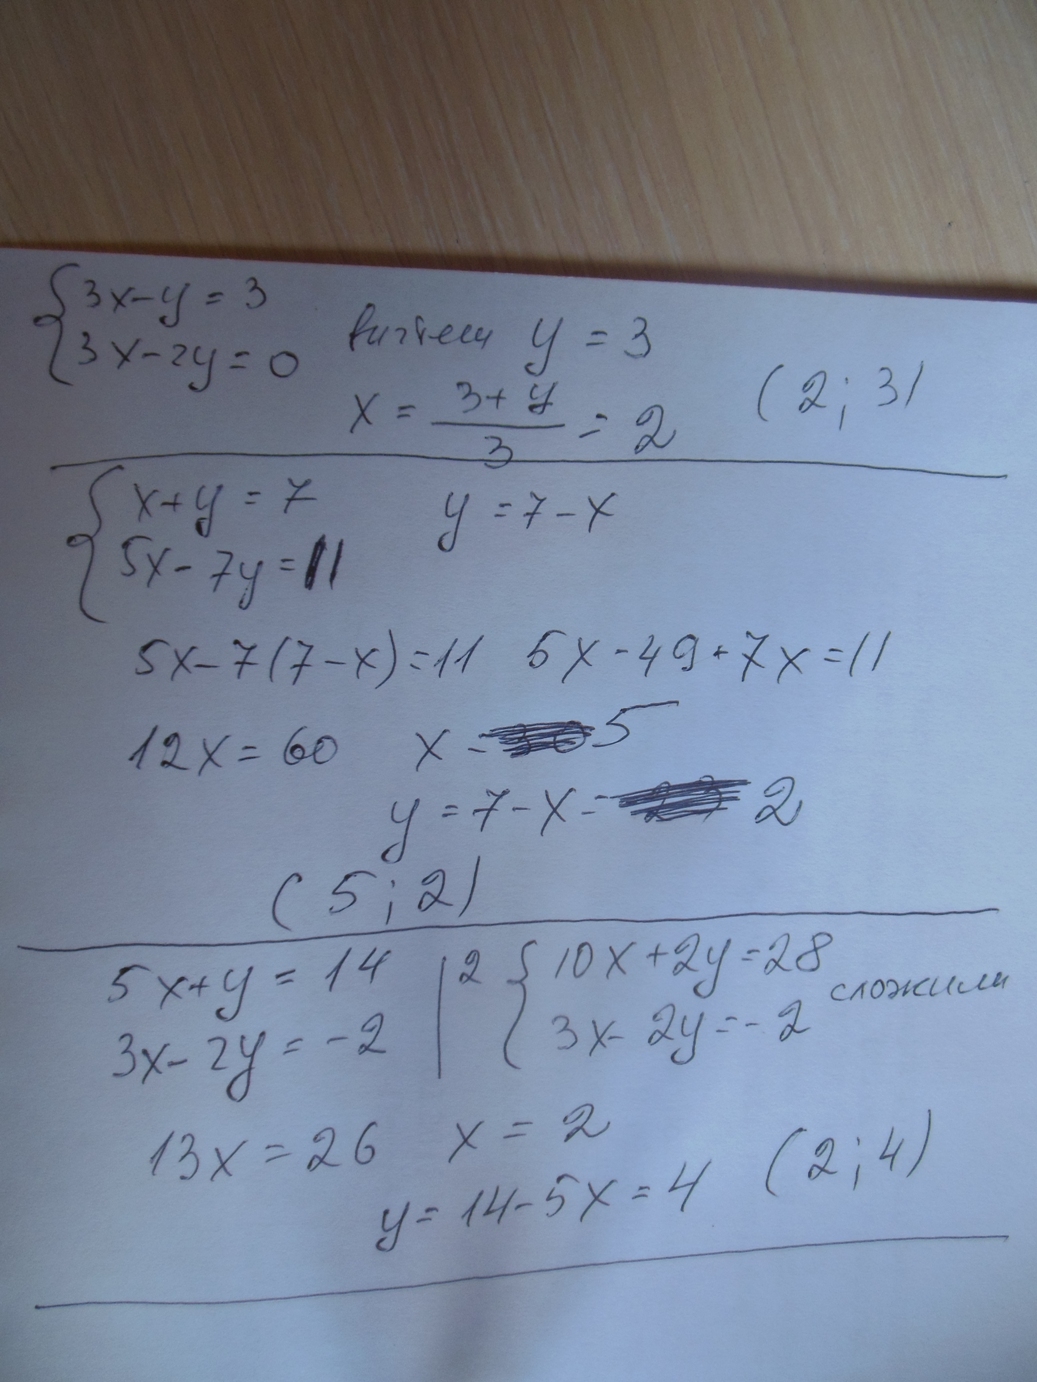 3x-y=3
3x-2y=0
вычтем y=3
x = (3+y)/3 = 2 (2; 3)
x+y=7 y=7-x
5x-7y=11
5x-7(7-x)=11 5x-49+7x=11
12x=60 x=5
y=7-x=2
(5;2)
5x+y=14 | 2 { 10x+2y=28
3x-2y=-2 3x-2y=-2 сложили
13x=26 x=2
y=14-5x=4 (2;4)